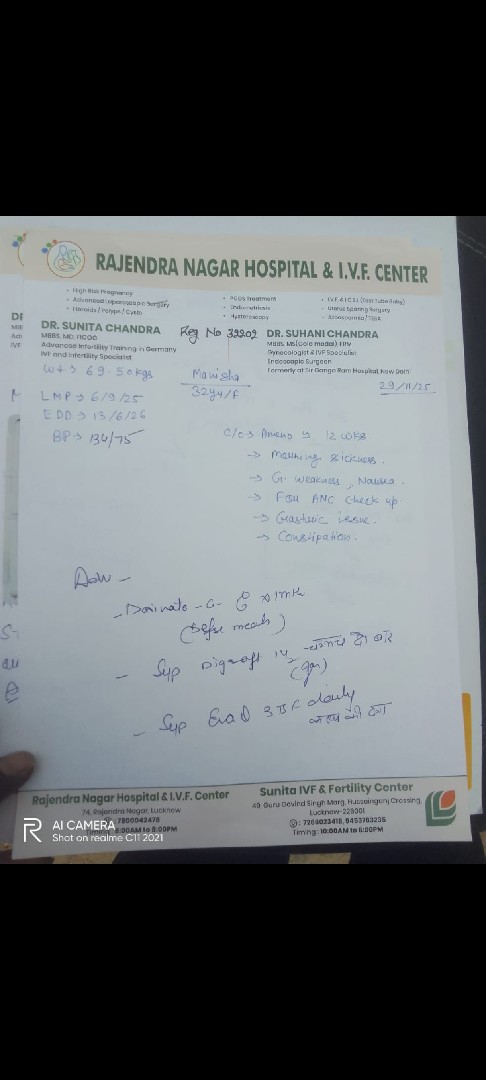 RAJENDRA NAGAR HOSPITAL & I.V.F. CENTER
• High Risk Pregnancy
• Advanced Laparoscopic Surgery
• Fibroids / Polyps / Cysts
• PCOS Treatment
• Endometriosis
• Hysteroscopy
• I.V.F. & I.C.S.I. (Test Tube Baby)
• Uterus Sparing Surgery
• Azoospermia / TESA
DR. SUNITA CHANDRA
MBBS, MD, FICOG
Advanced Infertility Training in Germany
IVF and Infertility Specialist
Reg No 39202
DR. SUHANI CHANDRA
MBBS, MS (Gold medal) FRM
Gynecologist & IVF Specialist
Endoscopic Surgeon
Formerly at Sir Ganga Ram Hospital, New Delhi
Wt → 69.50kgs
Manisha
32yr/F
29/11/25
LMP → 6/9/25
EDD → 13/6/26
BP → 134/75
C/o → Ameno 12 wks
→ Morning sickness.
→ G. weakness, Nausea
→ For ANC check up
→ Gastric issue.
→ Constipation.
Adv -
(before meals)
- Syp
- Syp daily
Rajendra Nagar Hospital & I.V.F. Center
74, Rajendra Nagar, Lucknow
7800042478
8:00AM to 8:00PM
Sunita IVF & Fertility Center
49, Guru Govind Singh Marg, Hussainganj Crossing,
Lucknow-226001
Timing: 10:00AM to 6:00PM
R AI CAMERA
Shot on realme C11 2021